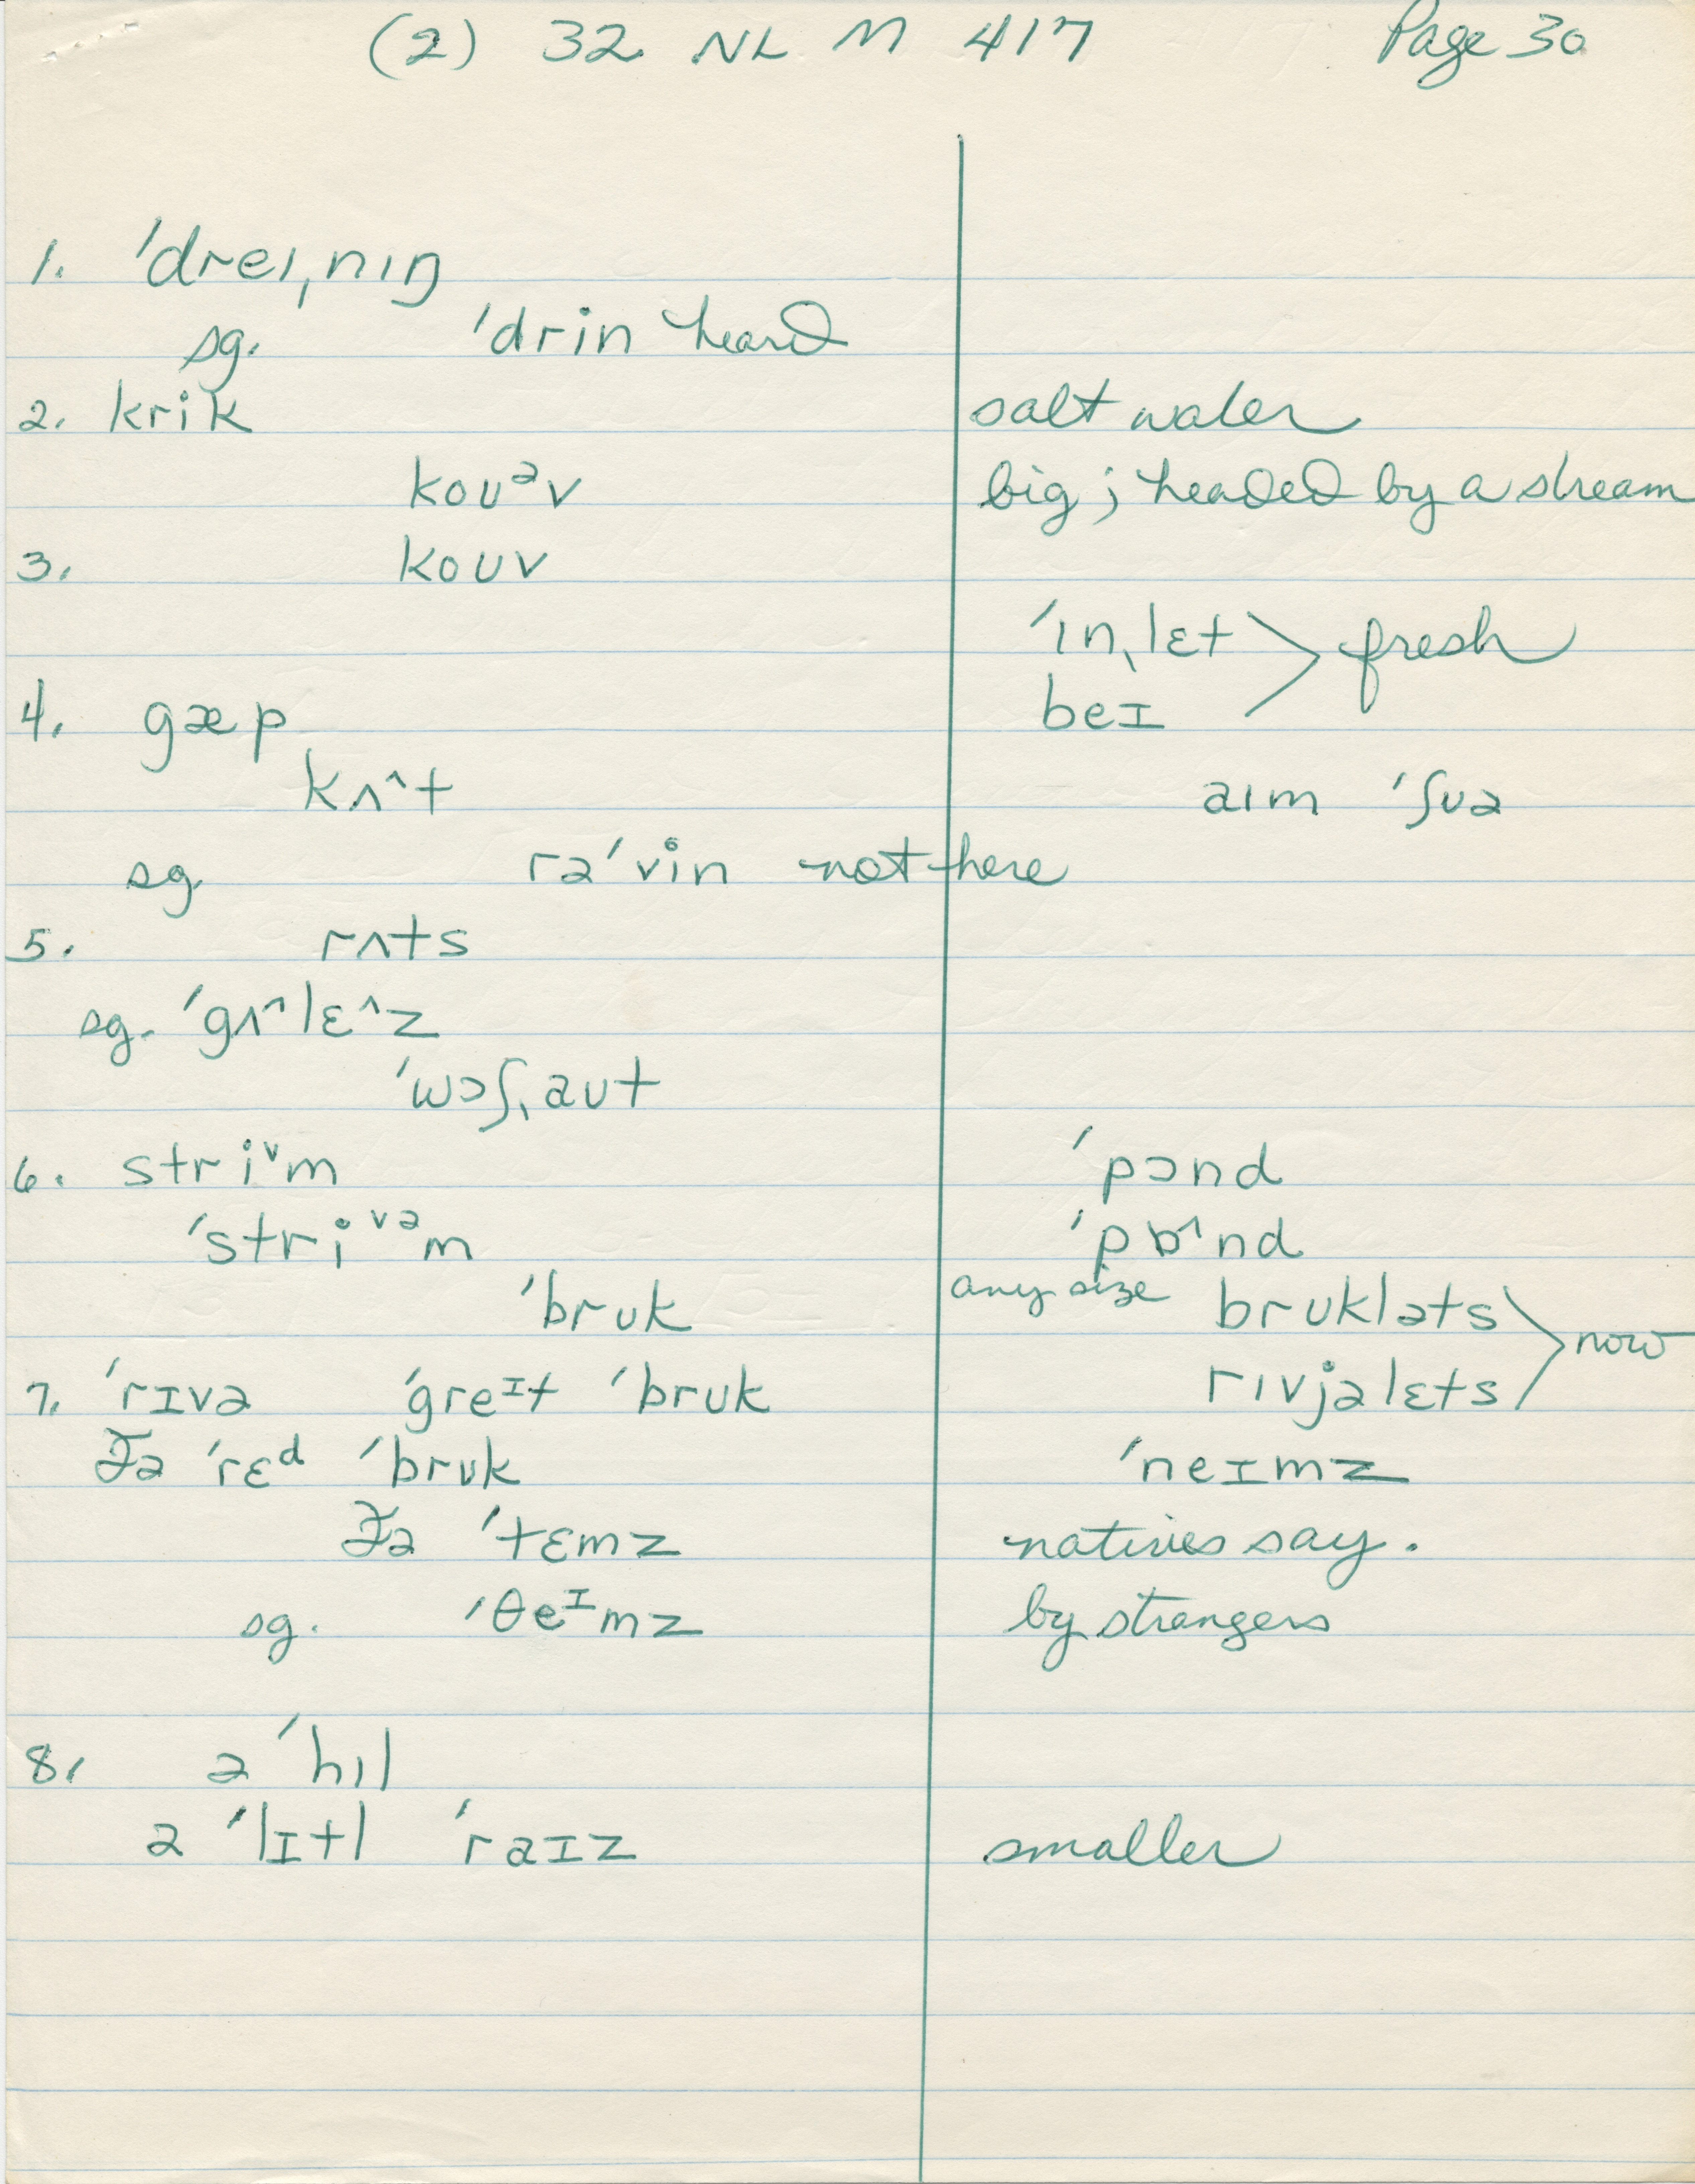 (2) 32 NL M 417 Page 30
1. ˈdreɪˌnɪŋ
sg. ˈdrin heard
2. krik salt water
koʊᵊv big; headed by a stream
3. koʊv
ˈɪnˌlɛt > fresh
4. gæp beɪ
kʌ^t aɪm ˈʃʊə
sg. rəˈvin not here
5. rʌts
sg. ˈgʌ^lɛ^z
ˈwɔʃˌaʊt
6. striᵛm ˈpɔnd
ˈstriᵛᵊm ˈpɒ^nd
ˈbrʊk any size brʊkləts > now
7. ˈrɪvə ˈgreᶦt ˈbrʊk rɪvjəlɛts
ðə ˈrɛᵈ ˈbrʊk ˈneɪmz
ðə ˈtɛmz natives say.
sg. ˈθeᶦmz by strangers
8. ə ˈhɪl
ə ˈlɪtl ˈraɪz smaller